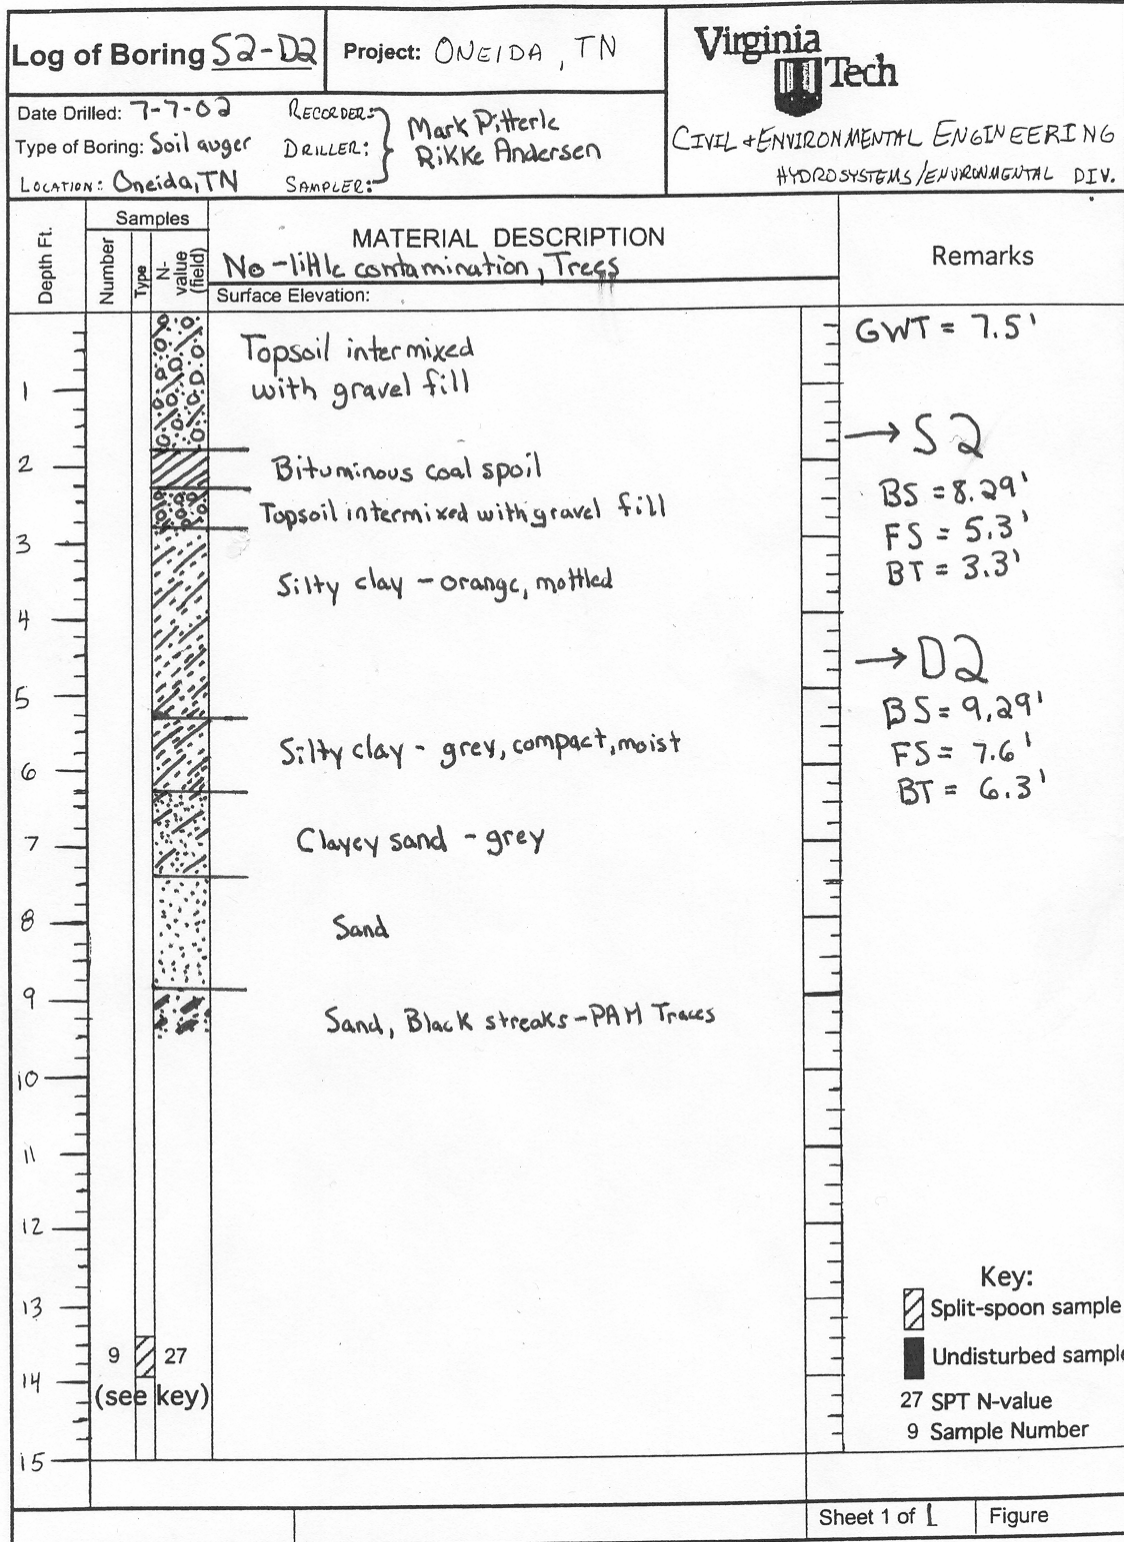 Log of Boring S2-D2
Project: ONEIDA, TN
Virginia
Tech
CIVIL + ENVIRONMENTAL ENGINEERING
HYDROSYSTEMS/ENVIRONMENTAL DIV.
Date Drilled: 7-7-02
Type of Boring: Soil auger
LOCATION: Oneida, TN
RECORDER:
DRILLER:
SAMPLER:
Mark Pitterle
Rikke Andersen
Depth Ft.
Samples
Number
Type
N-value (field)
MATERIAL DESCRIPTION
No-little contamination, Trees
Surface Elevation:
Remarks
GWT = 7.5'
Topsoil intermixed
with gravel fill
1
→ S2
2
Bituminous coal spoil
BS = 8.29'
Topsoil intermixed with gravel fill
FS = 5.3'
3
BT = 3.3'
Silty clay - orange, mottled
4
→ D2
5
BS = 9.29'
Silty clay - grey, compact, moist
FS = 7.6'
6
BT = 6.3'
7
Clayey sand - grey
8
Sand
9
Sand, Black streaks - PAH Traces
10
11
12
13
Key:
Split-spoon sample
9 27
Undisturbed sample
14
(see key)
27 SPT N-value
9 Sample Number
15
Sheet 1 of 1
Figure